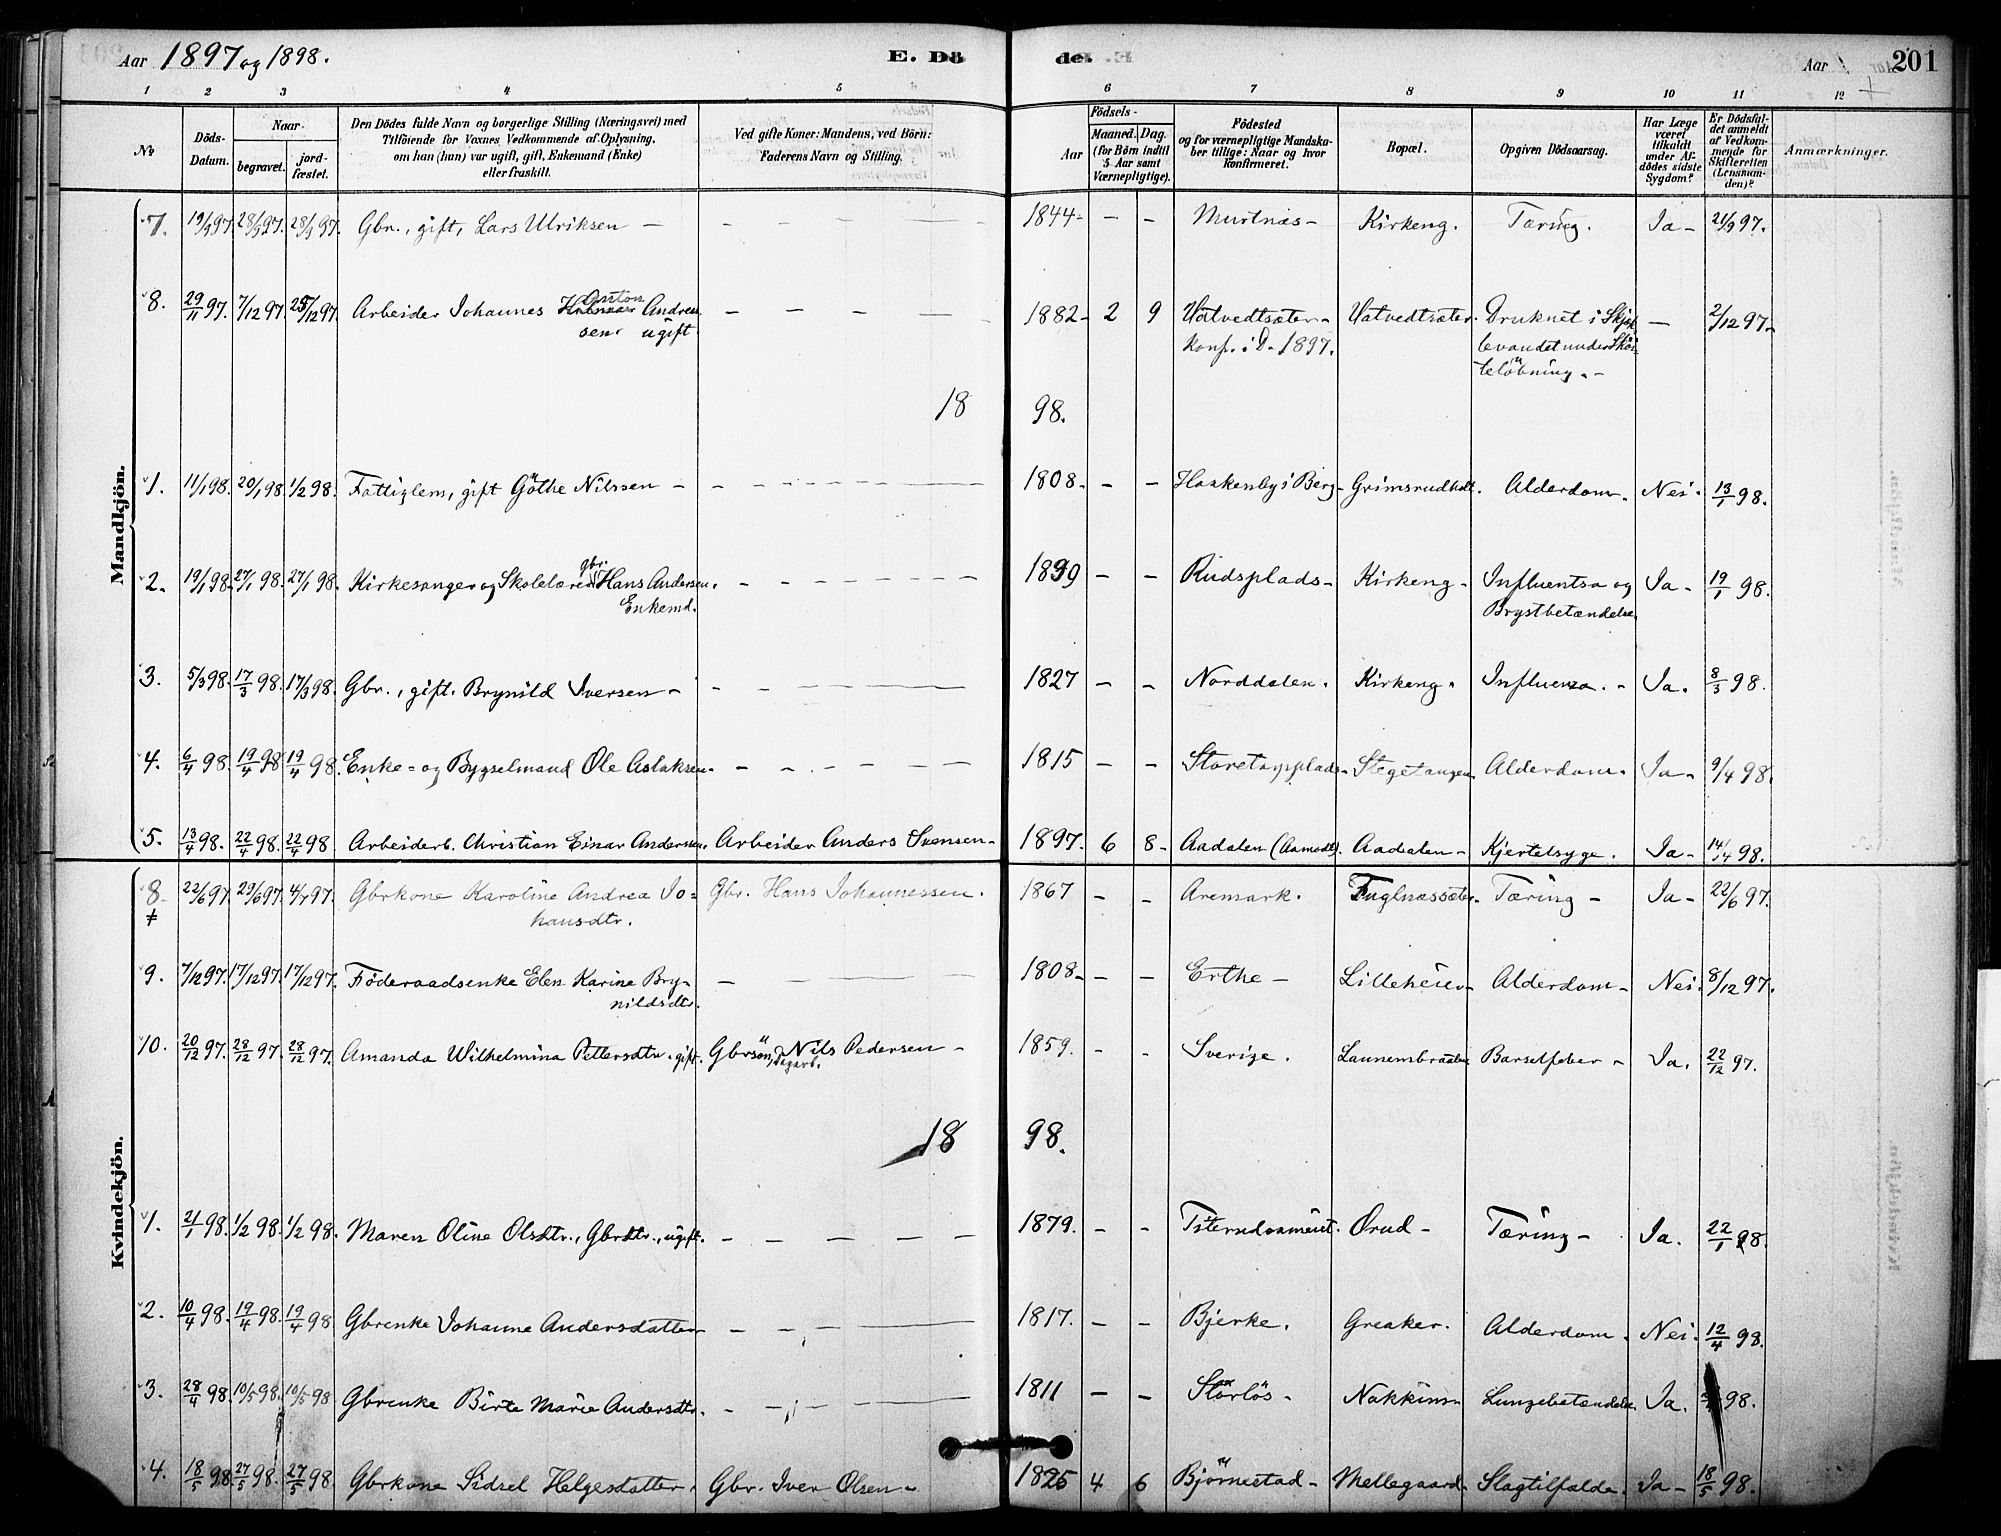 Aar 1897 og 1898. E. Dö de. Aar 201
1 2 3 4 5 6 7 8 9 10 11 12
No. Döds-Datum. Naar begravet. jordfæstet. Den Dödes fulde Navn og borgerlige Stilling (Næringsvei) med Tilföiende for Voxnes Vedkommende af Oplysning, om han (hun) var ugift, gift, Enkemand (Enke) eller fraskilt. Ved gifte Koner: Mandens, ved Börn: Faderens Navn og Stilling. Födsels- Aar Maaned. Dag. (for Börn indtil 5 Aar samt Værnepligtige). Födested og for værnepligtige Mandskaber tillige: Naar og hvor konfirmeret. Bopæl. Opgiven Dödsaarsag. Har Læge været tilkaldt under Afdödes sidste Sygdom? Er Dödsfaldet anmeldt af Vedkommende for Skifteretten (Lensmanden)? Anmærkninger.
Mandkjön.
7. 19/9 97. 28/9 97. 28/9 97. Gbr., gift, Lars Ulriksen — — — — — 1844- — — Murtnæs- Kirkeng. Tæring. Ja- 21/9 97.
8. 29/11 97. 7/12 97. 25/12 97. Arbeider Johannes Anton Andrea- — — — — 1882- 2 9 Hatvedtsæter- Hatvedtsæter. Druknet i Skjæk- — 2/12 97-
sen. ugift Konf. i D- 1897. levandet under Skøi-
teløbning.-
18 98.
1. 11/1 98. 20/1 98. 1/2 98. Fattiglem, gift Göthe Nilssen - - - - 1808- - - Haakenby i Berg- Grimsrudhdt. Alderdom. Nei. 13/1 98.
2. 19/1 98. 27/1 98. 27/1 98. Kirkesanger og Skolelærer gbr. Hans Andersen. - - - - 1839 - - Rudsplads- Kirkeng- Influentsa og Ja- 19/1 98.
Enkemd. Brystbetændelse.
3. 5/3 98. 17/3 98. 17/3 98. Gbr., gift. Brynild Iversen - - - - 1827 - - Norddalen. Kirkeng. Influenza.- Ja. 8/3 98.
4. 6/4 98. 19/4 98 19/4 98. Enke- og Bygselmand Ole Aslaksen. - - - - 1815 - - Storetorpplads- Stegetangen Alderdom. Ja- 9/4 98.
5. 13/4 98. 22/4 98. 22/4 98 Arbeiderb. Christian Einar Andersen. Arbeider Anders Svensen- 1897. 6 8- Aadalen (Aamodt). Aadalen- Kjertelsyge. Ja- 14/4 98.
Kvindekjön.
8 22/6 97. 29/6 97. 4/7 97. Gbrkone Karoline Andrea Jo- Gbr. Hans Johannessen. 1867 - - Aremark. Fuglnæssæter. Tæring- Ja- 22/6 97.
hansdtr.
9. 7/12 97. 17/12 97. 17/12 97. Föderaadsenke Elen Karine Bry- - - - 1808- - - Erthe- Lilleheier- Alderdom- Nei. 8/12 97.
nildsdtr.
10. 20/12 97. 28/12 97. 28/12 97. Amanda Wilhelmina Pettersdtr. gift. Gbrsön, Dagarb. Nils Pedersen- 1859. - - Sverige. Barselfeber- Ja. 22/12 97.
18 98.
1. 21/1 98. 1/2 98. 1/2 98. Maren Oline Olsdtr., Gbrdtr., ugift. - - - - - 1879. - - Ørud- Tæring- Ja. 22/1 98.
2. 10/4 98. 19/4 98. 19/4 98 Gbrenke Johanne Andersdatter - - - 1817. - - Bjerke. Greaker. Alderdom. Nei. 12/4 98.
3. 28/4 98. 10/5 98. 10/5 98 Gbrenke Birte Marie Andersdtr. - - - 1811 - - Nakkim- Lungebetændelse. Ja. 98.
4. 18/5 98. 27/5 98. 27/5 98 Gbrkone Sidsel Helgesdatter. Gbr. Iver Olsen- 1825 4 6 Bjørnestad- Mellegaard- Slagtilfælde. Ja- 18/5 98.